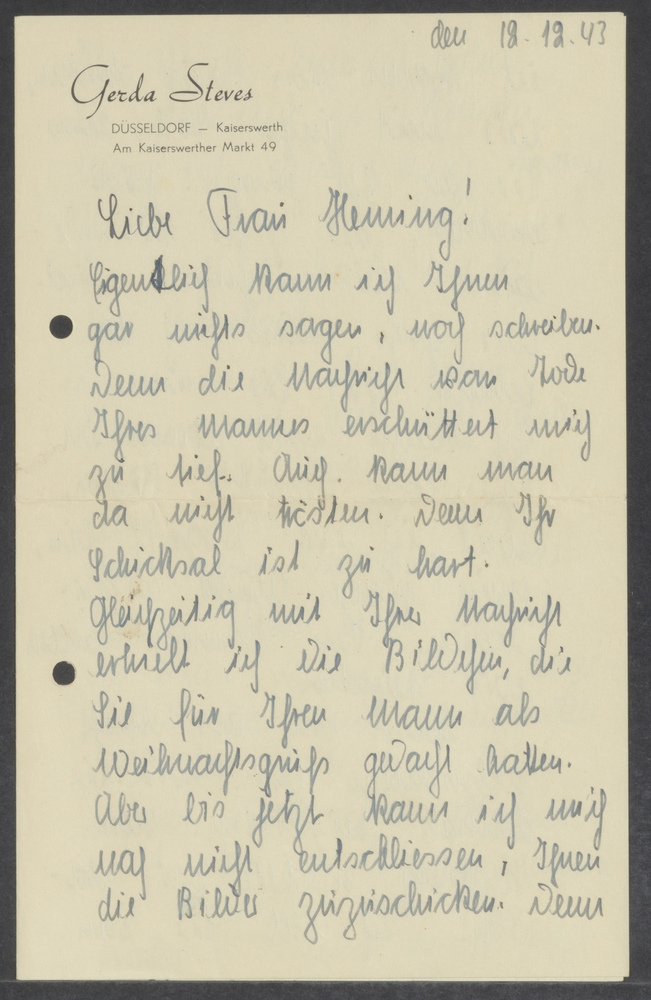 den 12.12.43
Gerda Steves
DÜSSELDORF – Kaiserswerth
Am Kaiserswerther Markt 49
Liebe Frau Heming!
Eigentlich kann ich Ihnen
gar nichts sagen, noch schreiben.
Denn die Nachricht vom Tode
Ihres Mannes erschüttert mich
zu tief. Auch kann man
da nicht trösten. Denn Ihr
Schicksal ist zu hart.
Gleichzeitig mit Ihrer Nachricht
erhielt ich die Bildchen, die
Sie für Ihren Mann als
Weihnachtsgruß gedacht hatten.
Aber bis jetzt kann ich mich
noch nicht entschliessen, Ihnen
die Bilder zuzuschicken. Denn